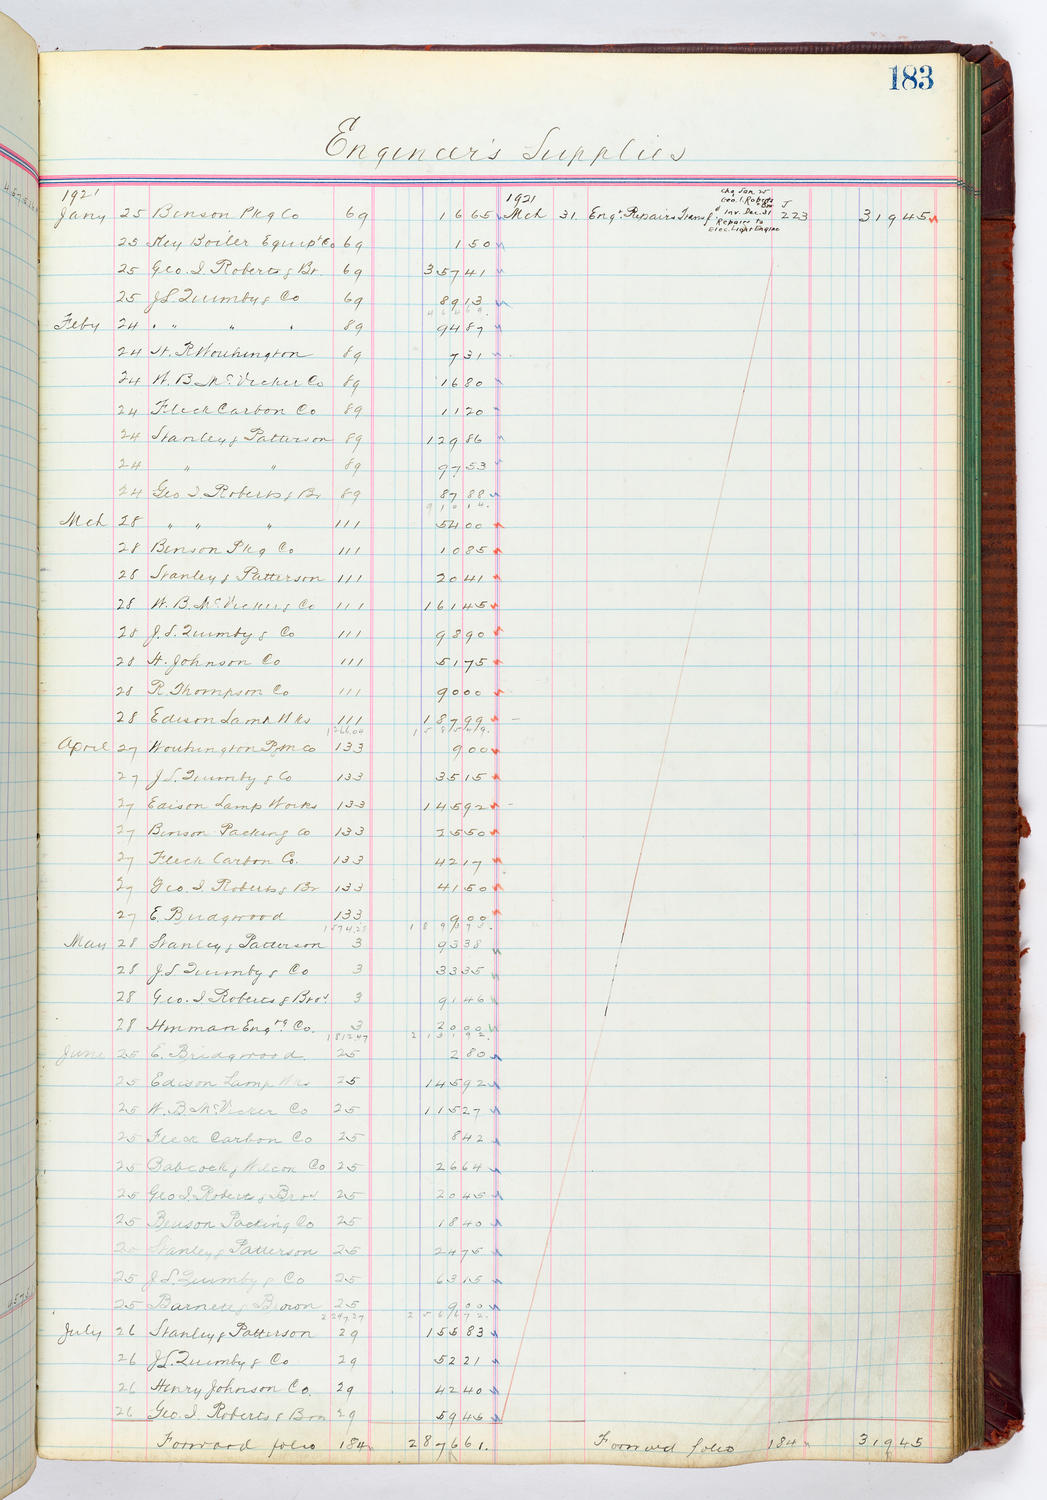 183
Engineer's Supplies
1921
Jany 25 Benson Pkg Co 69 16 65
25 Key Boiler Equip't Co 69 1 50
25 Geo. I. Roberts & Br. 69 357 41
25 J L Quimby & Co 69 89 13
464 69.
Feby 24 " " " " 89 94 87
24 H. R Worthington 89 7 31
24 W. B. McVicker Co 89 16 80
24 Fleck Carbon Co 89 11 20
24 Stanley & Patterson 89 129 86
24 " " 89 97 53
24 Geo I. Roberts & Br 89 87 88
910 14.
Mch 28 " " " 111 54 00
28 Benson Pkg Co 111 10 85
28 Stanley & Patterson 111 20 41
28 W. B. McVicker & Co 111 161 45
28 J. L. Quimby & Co 111 98 90
28 H. Johnson Co 111 51 75
28 R. Thompson Co 111 90 00
28 Edison Lamp Wks 111 187 99
1266.00 1585 49.
April 27 Worthington P & M Co 133 9 00
27 J L. Quimby & Co 133 35 15
27 Edison Lamp Works 133 145 92
27 Benson Packing Co 133 25 50
27 Fleck Carbon Co. 133 42 17
27 Geo. I. Roberts & Br 133 41 50
27 E. Bridgwood 133 9 00
1574.28 1893 73.
May 28 Stanley & Patterson 3 93 38
28 J. L Quimby & Co 3 33 35
28 Geo. I Roberts & Bros 3 91 46
28 Hinman Eng'rg Co. 3 20 00
1812.47 2131 92.
June 25 E. Bridgwood. 25 2 80
25 Edison Lamp Wks 25 145 92
25 W. B. McVicker Co 25 115 27
25 Fleck Carbon Co 25 8 42
25 Babcock & Wilcox Co 25 26 64
25 Geo I. Roberts & Bros 25 20 45
25 Benson Packing Co 25 18 40
25 Stanley & Patterson 25 24 75
25 J L. Quimby & Co 25 63 15
25 Barnett & Brown 25 9 00
2247.27 2566 72.
July 26 Stanley & Patterson 29 155 83
26 J L. Quimby & Co 29 52 21
26 Henry Johnson Co. 29 42 40
26 Geo. I. Roberts & Bros 29 59 45
Forward folio 184 2876 61.
1921
Mch 31 Eng'. Repairs Transf'
Chg Jan. 25
Geo. I. Roberts
& Bro
Inv. Dec. 31
Repairs to
Elec. Light Engine
J
223 319 45
Forward folio 184 319 45